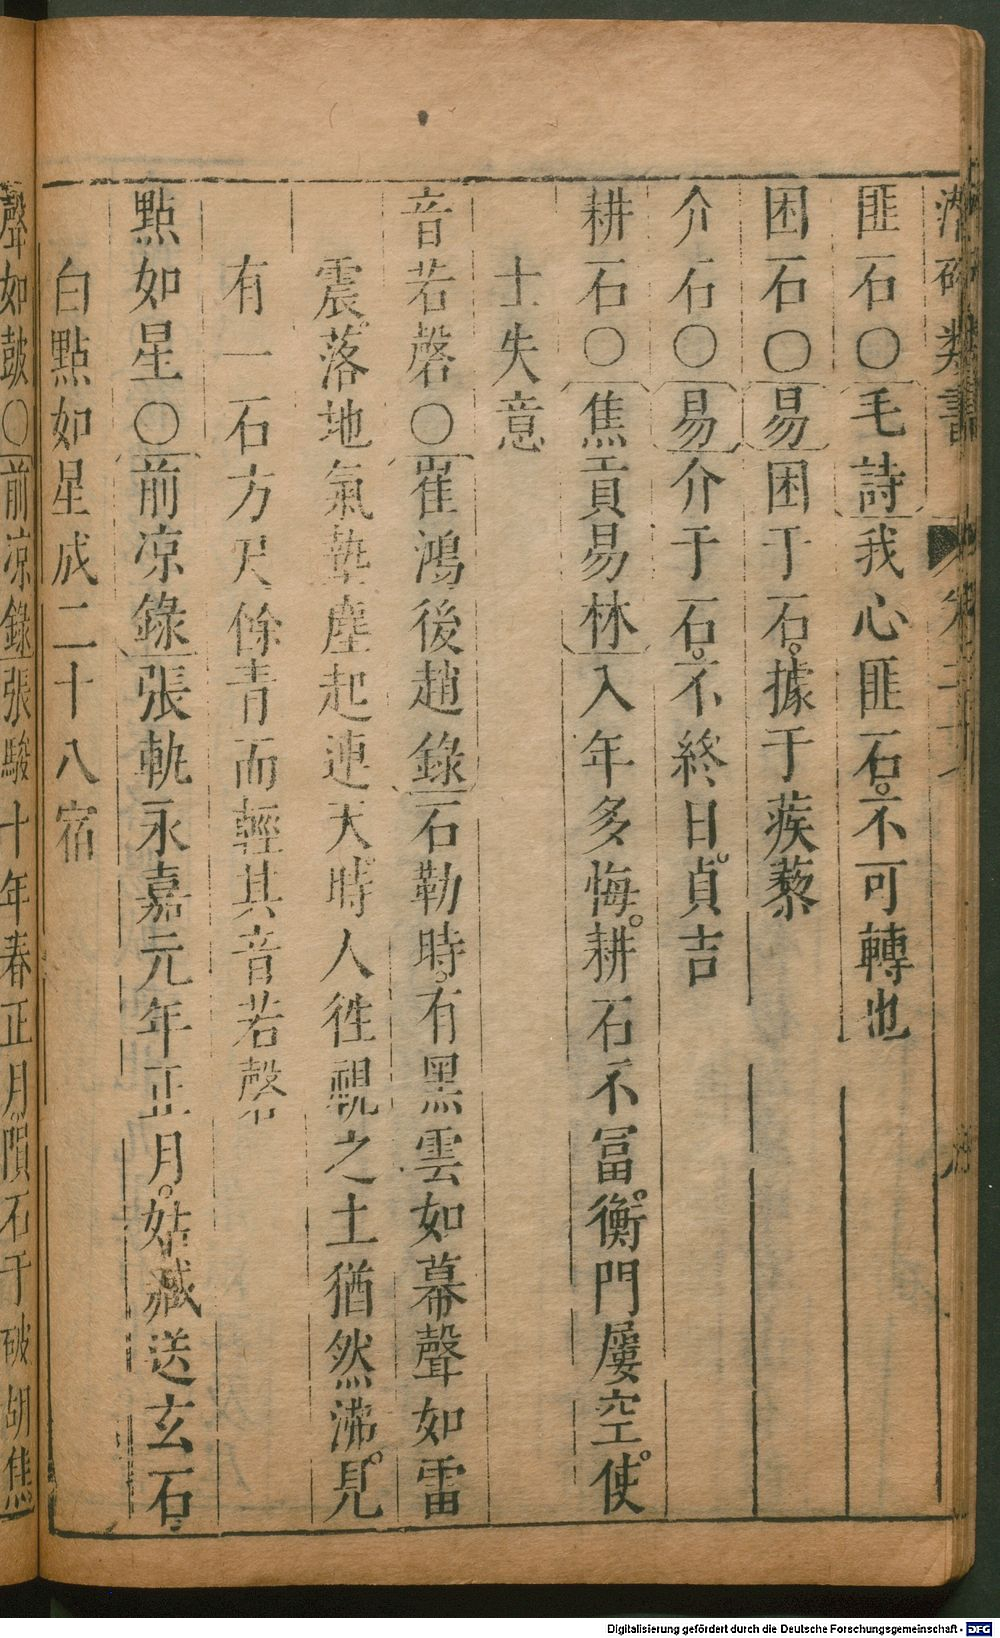 類書
匪石○毛詩我心匪石不可轉也
困石○易困于石據于蒺藜
介石○易介于石不終日貞吉
耕石○焦貢易林入年多悔耕石不富衡門屢空使
士失意
音若磬○崔鴻後趙錄石勒時有黑雲如幕聲如雷
震落地氣塾塵起連天時人徃視之土猶然沸見
有一石方尺餘青而輕其音若磬
點如星○前凉錄張軌永嘉元年正月姑臧送玄石
白點如星成二十八宿
聲如鼓○前凉錄張駿十年春正月隕石于破胡焦
Digitalisierung gefördert durch die Deutsche Forschungsgemeinschaft - DFG